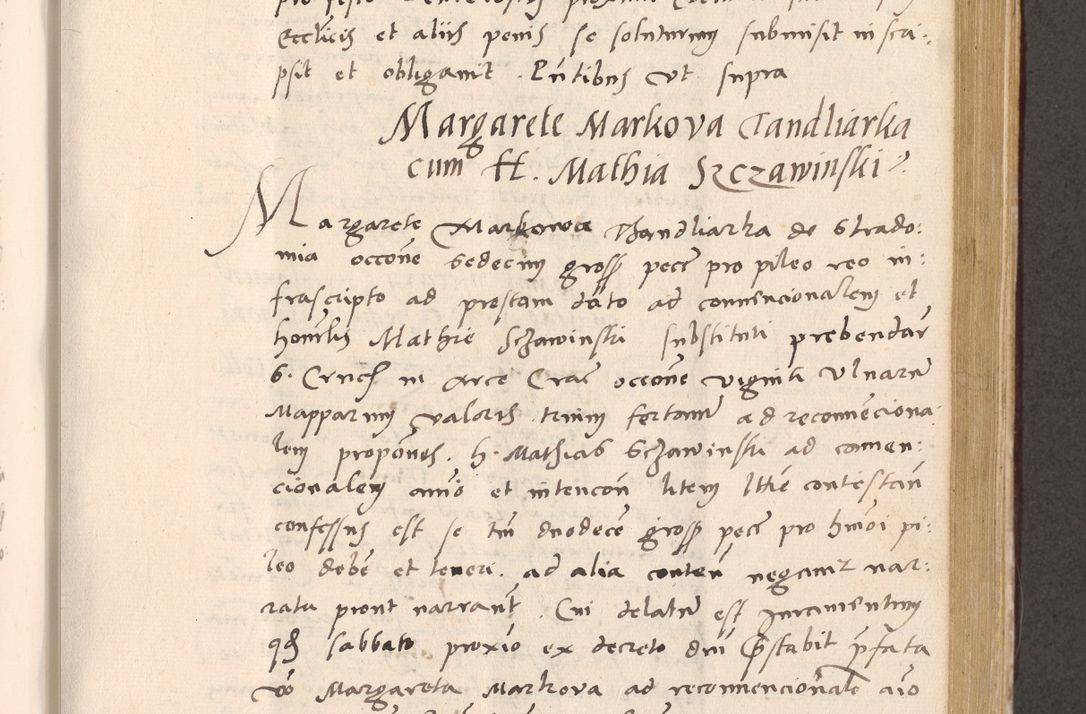 Ecclicis et aliis penis se soluturum submisit in scri:
psit et obligavit. Pntibus ut supra
Margarete Markova Tandliarka
cum H. Mathia Szczawinski
Margarete Markowa Thandliarka de Strado:
mia occōne sedecim gross pecc pro pileo reo in:
frascripto ad prostam dāto ad convencionalem et
honorlis Mathie Sczawinski substituti prebendar
S. Crucis in Arce Crac occōne viginti ulnarum
Mapparum valoris trium fertonum ad reconvenciona
lem propōnes. H. Mathias Sczawinski ad conven:
cionalem animo et intencōn litem lttīe contestan
confessus est se tm duodecem gross pecc pro hmōi pi:
leo debere et teneri. ad alia conten negavit nar:
rata prout narrant. Cui delatum est Iuramentum
qd sabbato proximo ex decreto dni prestabit prefata
vō Margareta Markova ad reconvencionale aīo